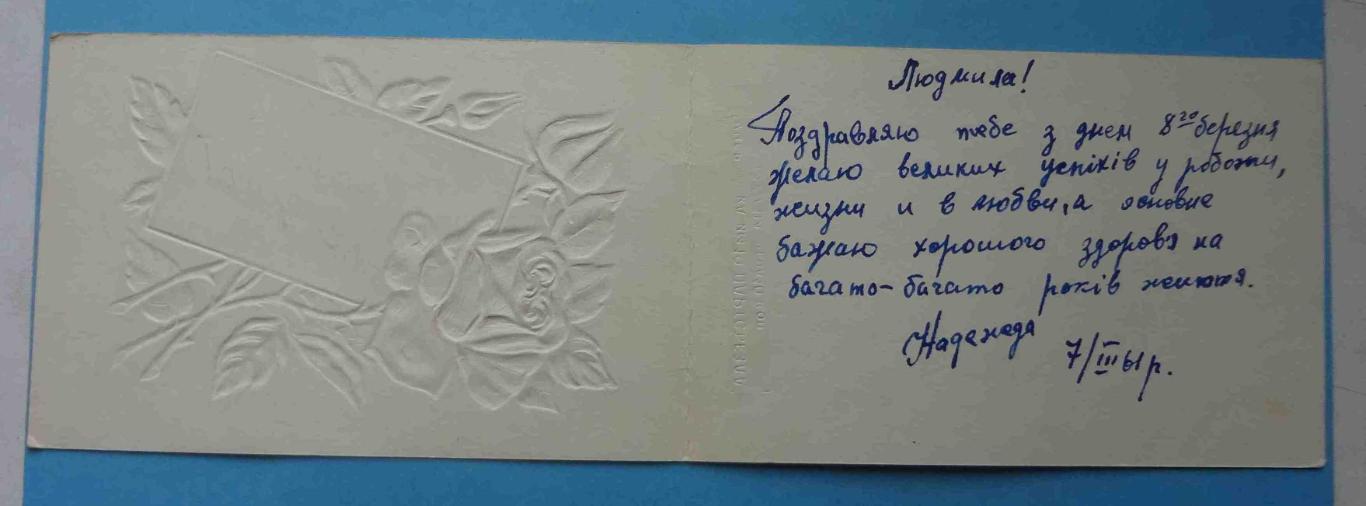 Людмила!
Поздравляю тебе з днем 8го березня
желаю великих успіхів у роботи,
жизни и в любви, а основне
бажаю хорошого здоровя на
багато-багато років життя.
Надежда
7/III р.